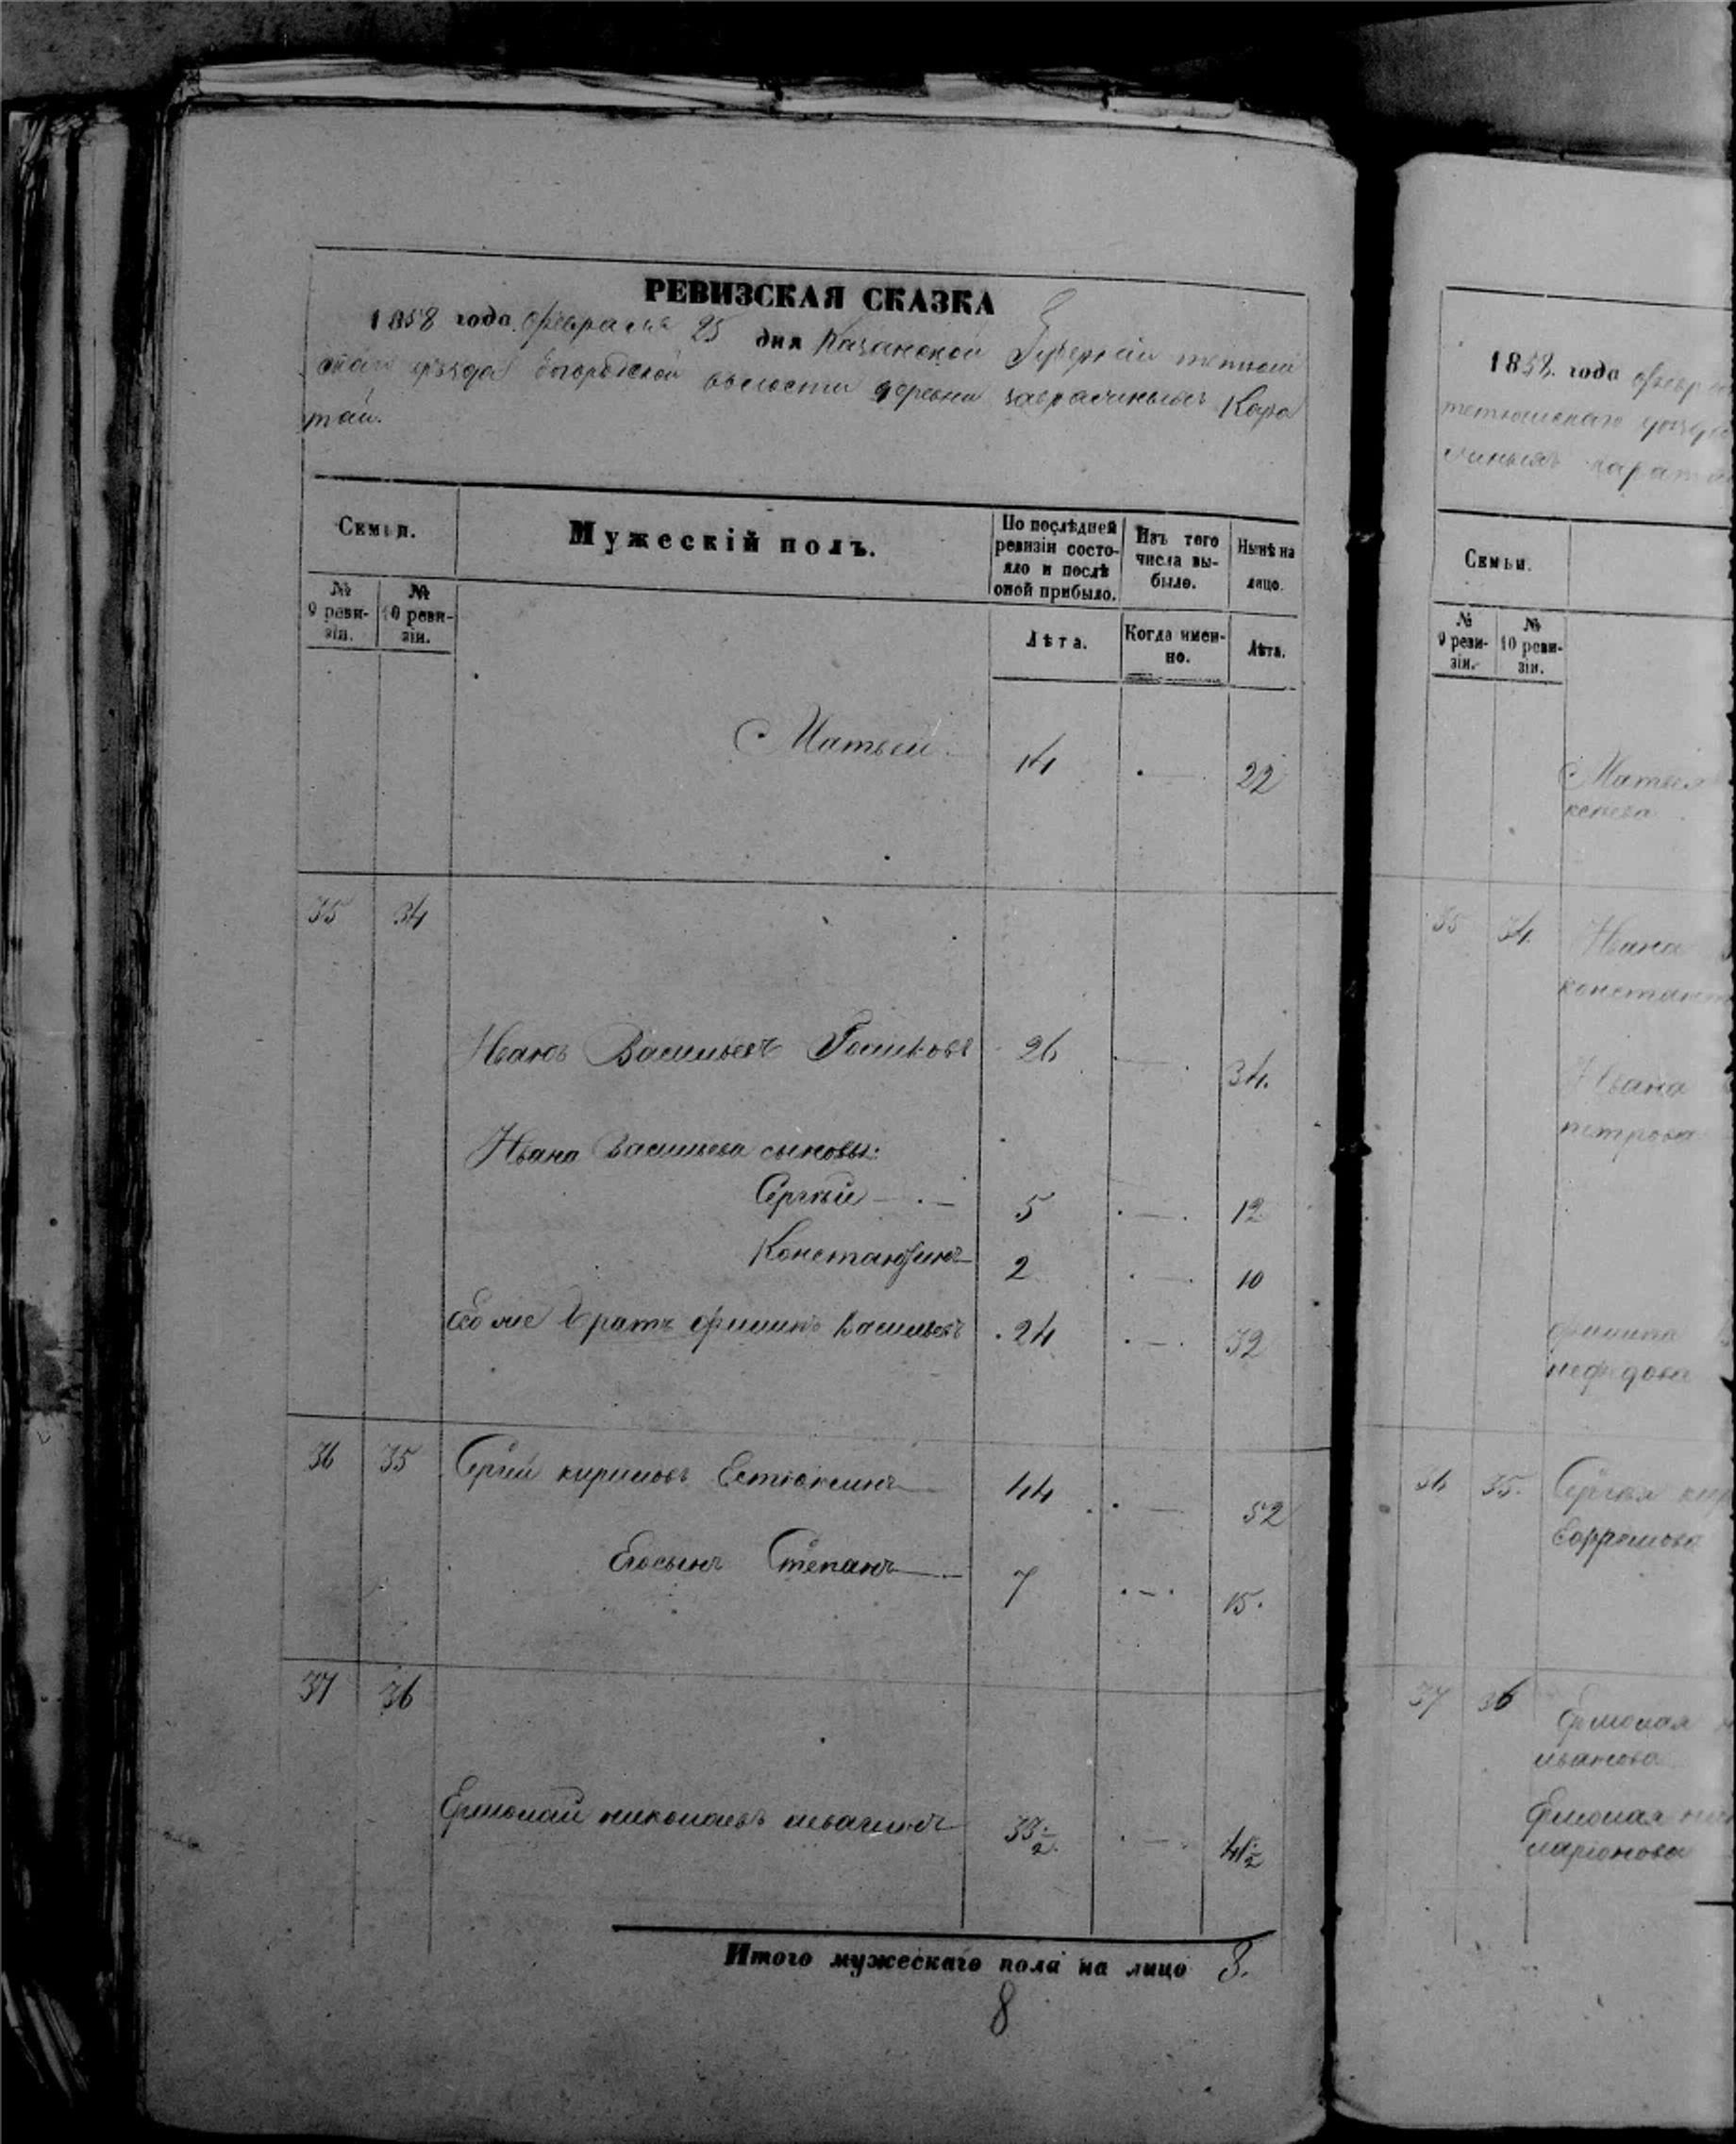 РЕВИЗСКАЯ СКАЗКА
1858 года февраля 25 дня Казанской Губернiи тетюш
скаго уезда Богородской волости деревни Кара
тай.
Семьи.
Мужескiй полъ.
По послѣдней ревизiи состо-
яло и послѣ
оной прибыло.
Изъ того
числа вы-
было.
Нынѣ на
лицо.
№
9 реви-
зiи.
№
10 реви-
зiи.
Лѣта.
Когда имен-
но.
Лѣта.
Матвей 14 22
35 34
Иванъ Васильевъ 26 34.
Ивана Васильева сыновья:
Сергѣй 5 12
Константинъ 2 10
Его же братъ филипъ Васильевъ 24 32
36 35 Сергѣй кириловъ 44 52
Его сынъ Степанъ 7 15.
37 36
Ермолай николаевъ 33½ 41½
Итого мужескаго пола на лицо 8.
8
1858. года февр
тетюшскаго уезда
карат
Семьи.
№
9 реви-
зiи.
№
10 реви-
зiи.
Матвея
35 34. Ивана
констант
Ивана
петрова
филипа
нефедова
36 35. Сергѣя кир
37 36
Ермолая
иванова
Ермолая ни
ларионова